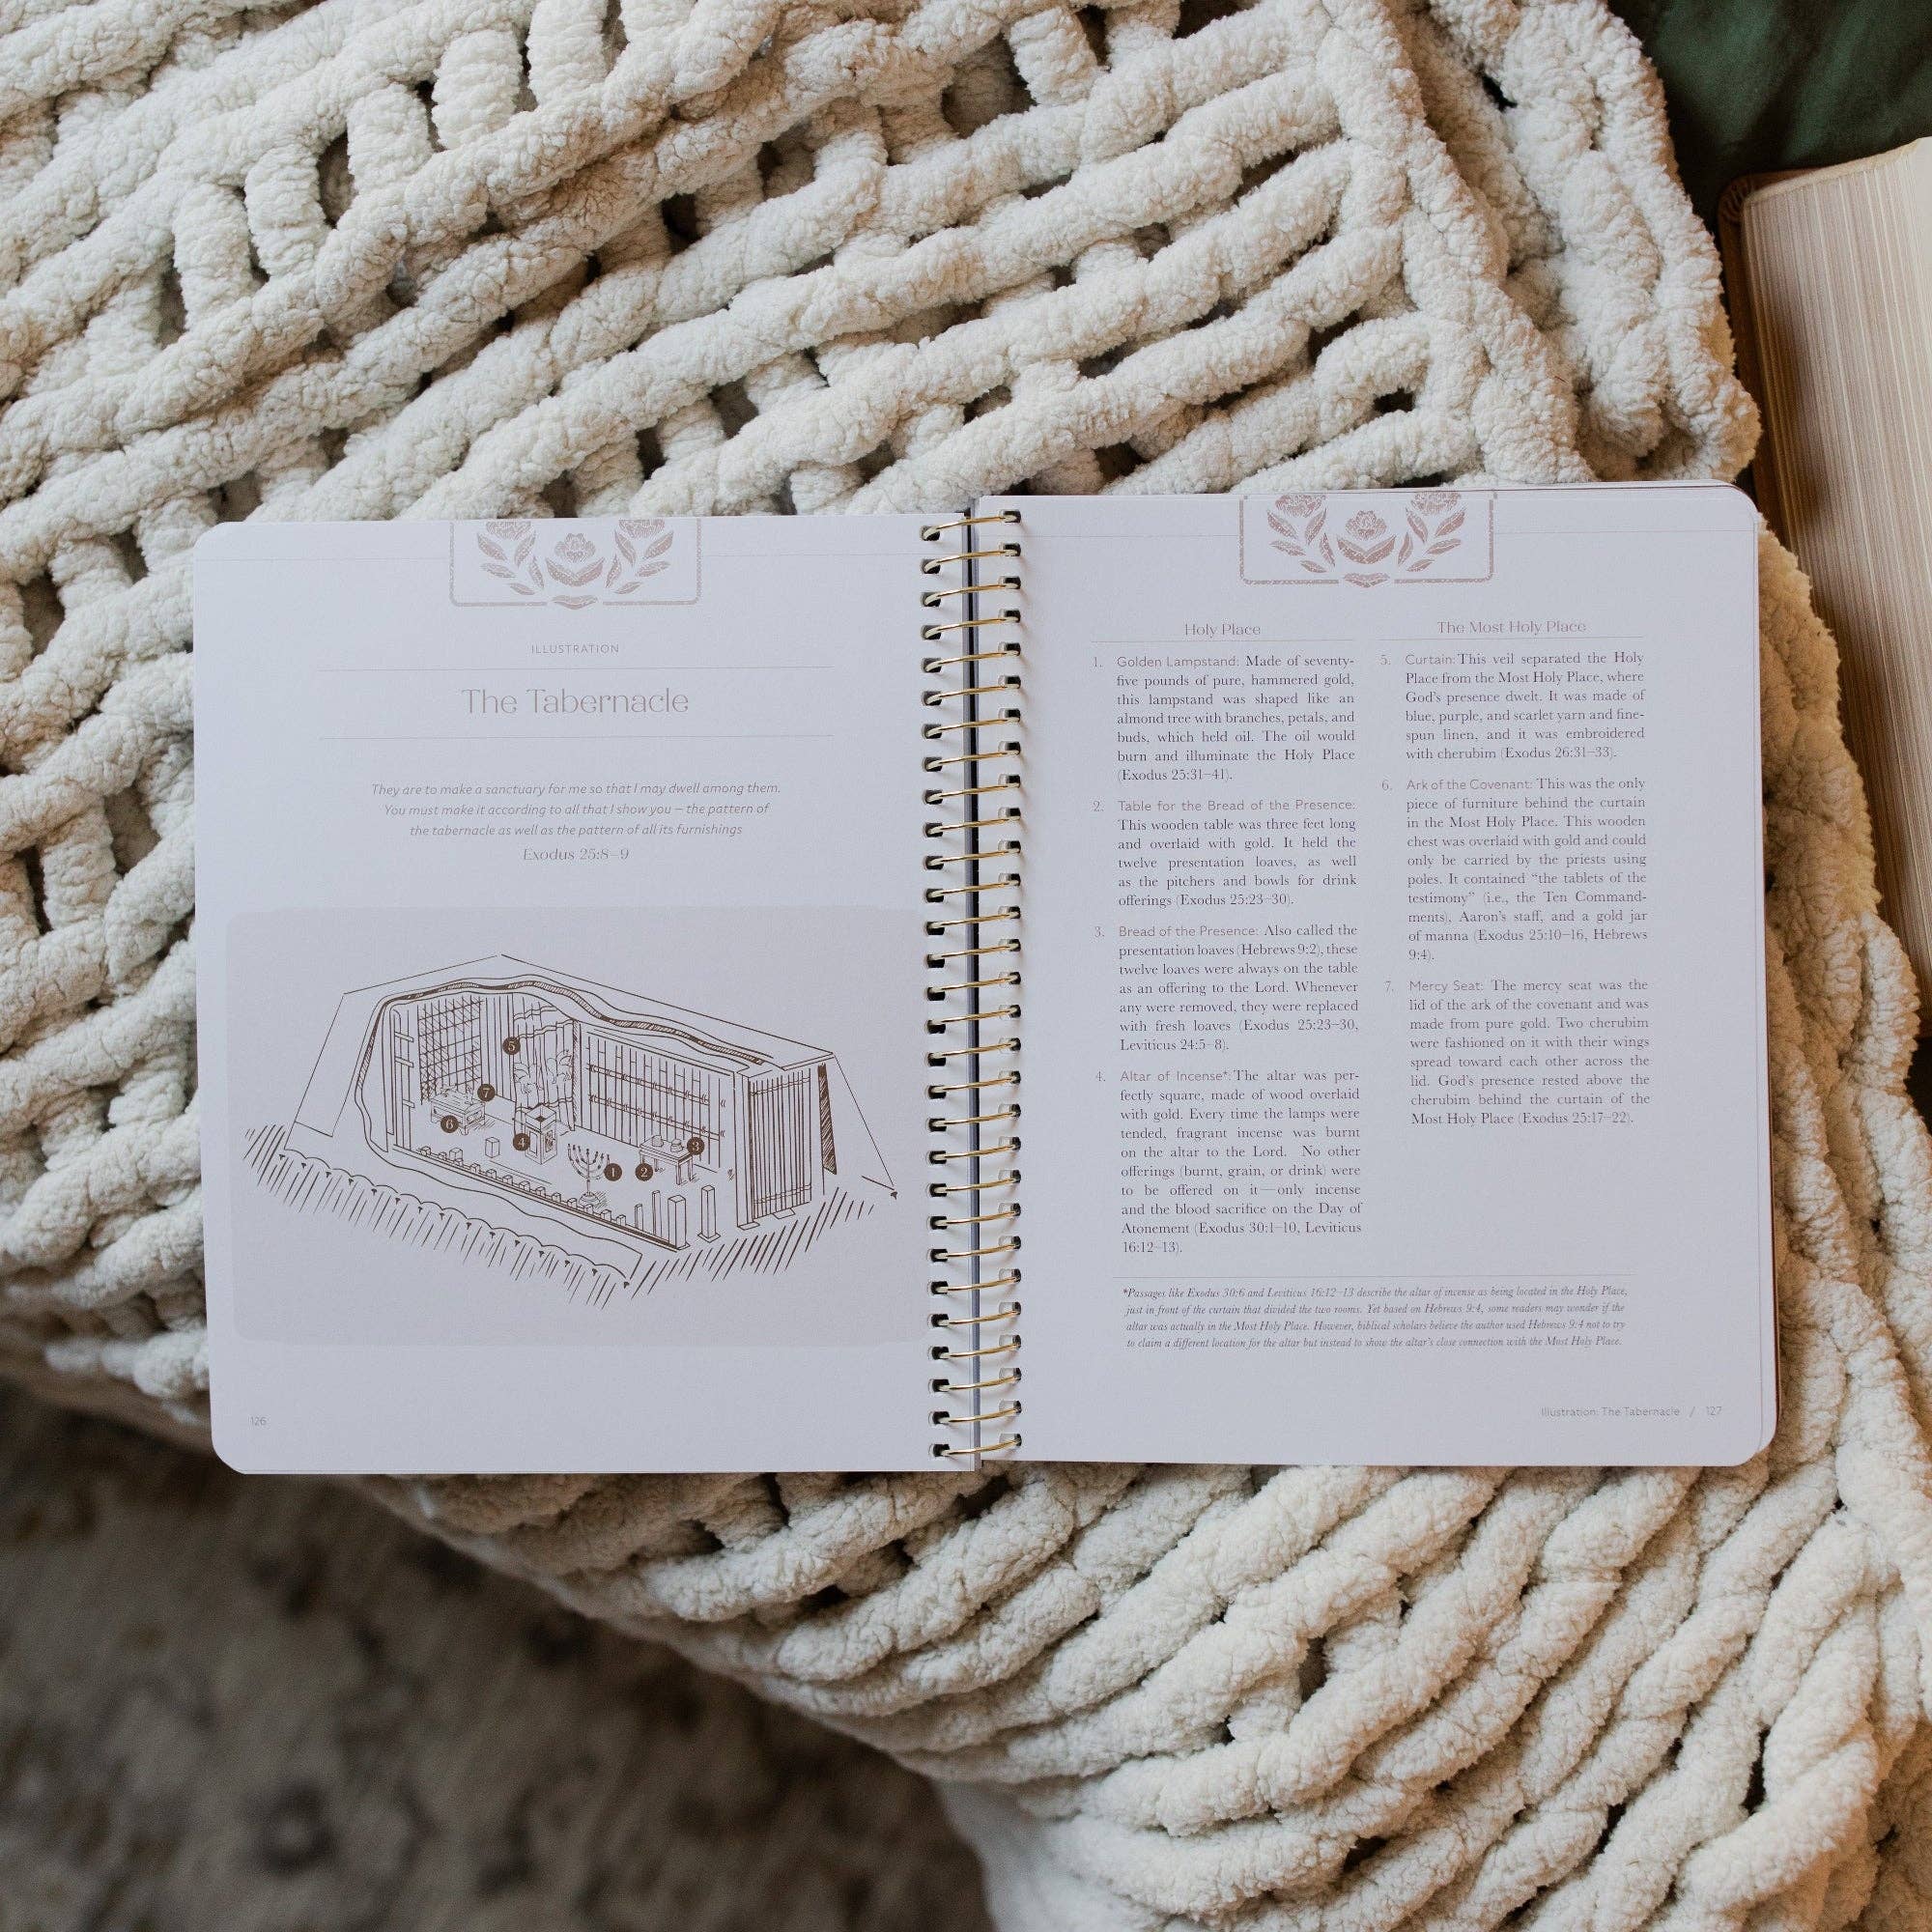 ILLUSTRATION
The Tabernacle
They are to make a sanctuary for me so that I may dwell among them.
You must make it according to all that I show you — the pattern of
the tabernacle as well as the pattern of all its furnishings
Exodus 25:8–9
5
7
6
4
3
1
2
126
Holy Place
1. Golden Lampstand: Made of seventy-
five pounds of pure, hammered gold,
this lampstand was shaped like an
almond tree with branches, petals, and
buds, which held oil. The oil would
burn and illuminate the Holy Place
(Exodus 25:31–41).
2. Table for the Bread of the Presence:
This wooden table was three feet long
and overlaid with gold. It held the
twelve presentation loaves, as well
as the pitchers and bowls for drink
offerings (Exodus 25:23–30).
3. Bread of the Presence: Also called the
presentation loaves (Hebrews 9:2), these
twelve loaves were always on the table
as an offering to the Lord. Whenever
any were removed, they were replaced
with fresh loaves (Exodus 25:23–30,
Leviticus 24:5–8).
4. Altar of Incense*: The altar was per-
fectly square, made of wood overlaid
with gold. Every time the lamps were
tended, fragrant incense was burnt
on the altar to the Lord. No other
offerings (burnt, grain, or drink) were
to be offered on it—only incense
and the blood sacrifice on the Day of
Atonement (Exodus 30:1–10, Leviticus
16:12–13).
The Most Holy Place
5. Curtain: This veil separated the Holy
Place from the Most Holy Place, where
God's presence dwelt. It was made of
blue, purple, and scarlet yarn and fine-
spun linen, and it was embroidered
with cherubim (Exodus 26:31–33).
6. Ark of the Covenant: This was the only
piece of furniture behind the curtain
in the Most Holy Place. This wooden
chest was overlaid with gold and could
only be carried by the priests using
poles. It contained “the tablets of the
testimony” (i.e., the Ten Command-
ments), Aaron's staff, and a gold jar
of manna (Exodus 25:10–16, Hebrews
9:4).
7. Mercy Seat: The mercy seat was the
lid of the ark of the covenant and was
made from pure gold. Two cherubim
were fashioned on it with their wings
spread toward each other across the
lid. God's presence rested above the
cherubim behind the curtain of the
Most Holy Place (Exodus 25:17–22).
*Passages like Exodus 30:6 and Leviticus 16:12–13 describe the altar of incense as being located in the Holy Place,
just in front of the curtain that divided the two rooms. Yet based on Hebrews 9:4, some readers may wonder if the
altar was actually in the Most Holy Place. However, biblical scholars believe the author used Hebrews 9:4 not to try
to claim a different location for the altar but instead to show the altar's close connection with the Most Holy Place.
Illustration: The Tabernacle / 127